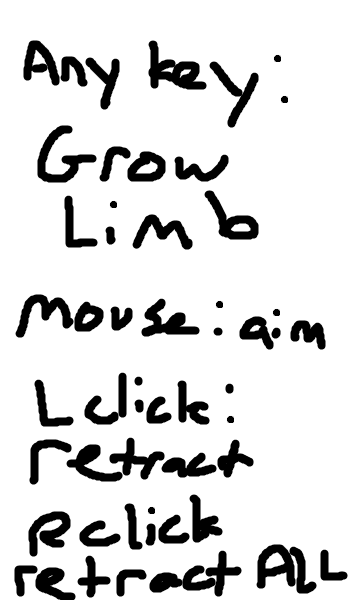 Any key:
Grow
Limb
mouse: aim
L click:
retract
R click
retract ALL